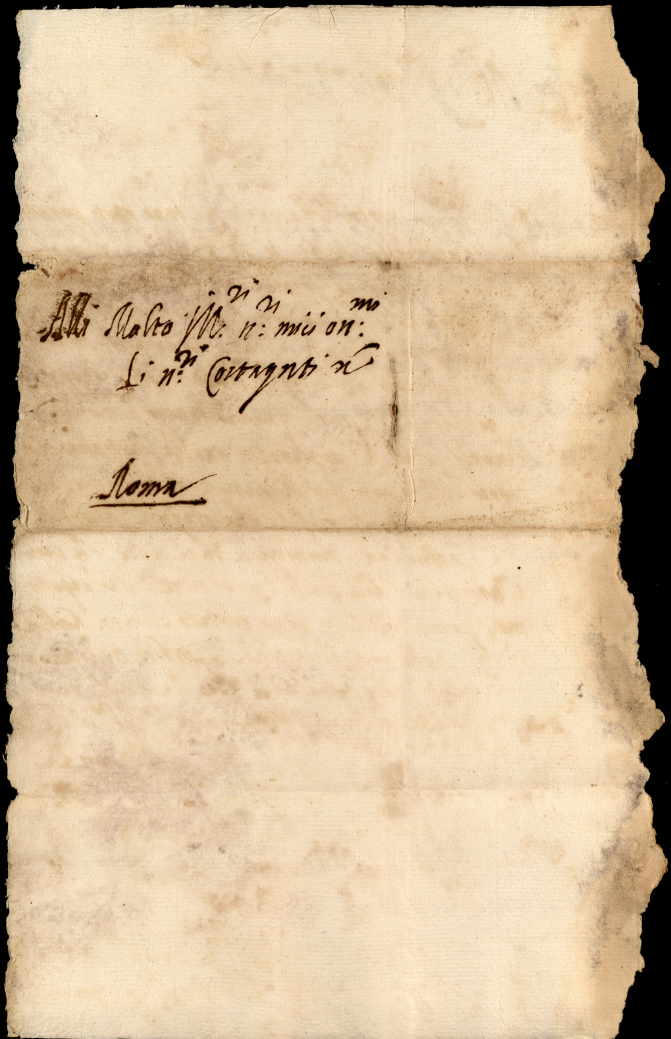 Alli Molto Ill.ri n.ri miei on.mi
Li n.ri Costaguti n
Roma